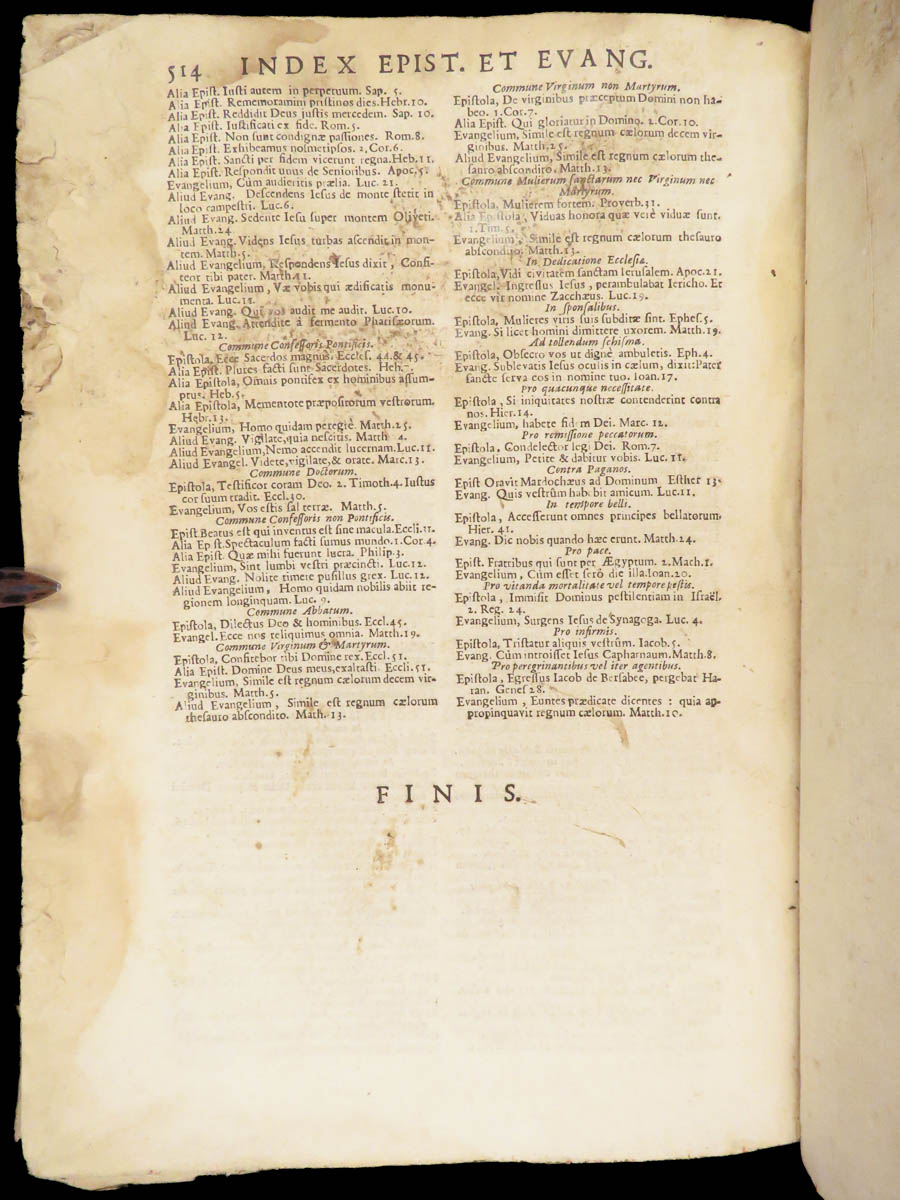 514 INDEX EPIST. ET EVANG.
Alia Epist. Iusti autem in perpetuum. Sap. 5.
Alia Epist. Rememoramini pristinos dies. Hebr. 10.
Alia Epist. Reddidit Deus justis mercedem. Sap. 10.
Alia Epist. Iustificati ex fide. Rom. 5.
Alia Epist. Non sunt condignæ passiones. Rom. 8.
Alia Epist. Exhibeamus nosmetipsos. 2. Cor. 6.
Alia Epist. Sancti per fidem vicerunt regna. Heb. 11.
Alia Epist. Respondit unus de Senioribus. Apoc. 5.
Evangelium, Cùm audieritis prælia. Luc. 21.
Aliud Evang. Descendens Iesus de monte stetit in
loco campestri. Luc. 6.
Aliud Evang. Sedente Iesu super montem Oliveti.
Matth. 24
Aliud Evang. Videns Iesus turbas ascendit in mon-
tem. Matth. 5.
Aliud Evangelium, Respondens Iesus dixit, Confi-
teor tibi pater. Matth. 11.
Aliud Evangelium, Væ vobis qui ædificatis monu-
menta. Luc. 11.
Aliud Evang. Qui vos audit me audit. Luc. 10.
Aliud Evang. Attendite à fermento Pharisæorum.
Luc. 12.
Commune Confessoris Pontificis.
Epistola, Ecce Sacerdos magnus. Eccles. 44. & 45.
Alia Epist. Plures facti sunt Sacerdotes. Heb. 7.
Alia Epistola, Omnis pontifex ex hominibus assum-
ptus. Heb. 5.
Alia Epistola, Mementote præpositorum vestrorum.
Hebr. 13.
Evangelium, Homo quidam peregrè. Matth. 25.
Aliud Evang. Vigilate, quia nescitis. Matth 4.
Aliud Evangelium, Nemo accendit lucernam. Luc. 11.
Aliud Evangel. Videte, vigilate, & orate. Marc. 13.
Commune Doctorum.
Epistola, Testificor coram Deo. 2. Timoth. 4. Iustus
cor suum tradit. Eccl. 30.
Evangelium, Vos estis sal terræ. Matth. 5.
Commune Confessoris non Pontificis.
Epist. Beatus est qui inventus est sine macula. Eccli. 31.
Alia Ep st. Spectaculum facti sumus mundo. 1. Cor. 4.
Alia Epist. Quæ mihi fuerunt lucra. Philip. 3.
Evangelium, Sint lumbi vestri præcincti. Luc. 12.
Aliud Evang. Nolite timere pusillus grex. Luc. 12.
Aliud Evangelium, Homo quidam nobilis abiit re-
gionem longinquam. Luc. 9.
Commune Abbatum.
Epistola, Dilectus Deo & hominibus. Eccl. 45.
Evangel. Ecce nos reliquimus omnia. Matth. 19.
Commune Virginum & Martyrum.
Epistola, Confitebor tibi Domine rex. Eccl. 51.
Alia Epist. Domine Deus meus, exaltasti. Eccli. 51.
Evangelium, Simile est regnum cælorum decem vir-
ginibus. Matth. 5.
Aliud Evangelium, Simile est regnum cælorum
thesauro abscondito. Math. 13.
Commune Virginum non Martyrum.
Epistola, De virginibus præceptum Domini non ha-
beo. 1. Cor. 7.
Alia Epist. Qui gloriatur in Domino. 2. Cor. 10.
Evangelium, Simile est regnum cælorum decem vir-
ginibus. Matth. 25.
Aliud Evangelium, Simile est regnum cælorum the-
sauro abscondito. Matth. 13.
Commune Mulierum sanctarum nec Virginum nec
Martyrum.
Epistola, Mulierem fortem. Proverb. 31.
Alia Epistola, Viduas honora quæ verè viduæ sunt.
1. Tim. 5.
Evangelium, Simile est regnum cælorum thesauro
abscondito. Matth. 13.
In Dedicatione Ecclesiæ.
Epistola, Vidi civitatem sanctam Ierusalem. Apoc. 21.
Evangel. Ingressus Iesus, perambulabat Iericho. Et
ecce vir nomine Zacchæus. Luc. 19.
In sponsalibus.
Epistola, Mulieres viris suis subditæ sint. Ephes. 5.
Evang. Si licet homini dimittere uxorem. Matth. 19.
Ad tollendum schisma.
Epistola, Obsecro vos ut dignè ambuletis. Eph. 4.
Evang. Sublevatis Iesus oculis in cælum, dixit: Pater
sancte serva eos in nomine tuo. Ioan. 17.
Pro quacunque necessitate.
Epistola, Si iniquitates nostræ contenderint contra
nos. Hier. 14.
Evangelium, habete fid m Dei. Marc. 12.
Pro remissione peccatorum.
Epistola, Condelector legi Dei. Rom. 7.
Evangelium, Petite & dabitur vobis. Luc. 11.
Contra Paganos.
Epist Oravit Mardochæus ad Dominum Esther 13.
Evang. Quis vestrûm hab bit amicum. Luc. 11.
In tempore belli.
Epistola, Accesserunt omnes principes bellatorum.
Hier. 41.
Evang. Dic nobis quando hæc erunt. Matth. 24.
Pro pace.
Epist. Fratribus qui sunt per Ægyptum. 2. Mach. 1.
Evangelium, Cùm esset serò die illa. Ioan. 20.
Pro vitanda mortalitate vel tempore pestis.
Epistola, Immisit Dominus pestilentiam in Israël.
2. Reg. 24.
Evangelium, Surgens Iesus de Synagoga. Luc. 4.
Pro infirmis.
Epistola, Tristatur aliquis vestrûm. Iacob. 5.
Evang. Cùm introisset Iesus Capharnaum. Matth. 8.
Pro peregrinantibus vel iter agentibus.
Epistola, Egressus Iacob de Bersabee, pergebat Ha-
ran. Genes 28.
Evangelium, Euntes prædicate dicentes: quia ap-
propinquavit regnum cælorum. Matth. 10.
FINIS.